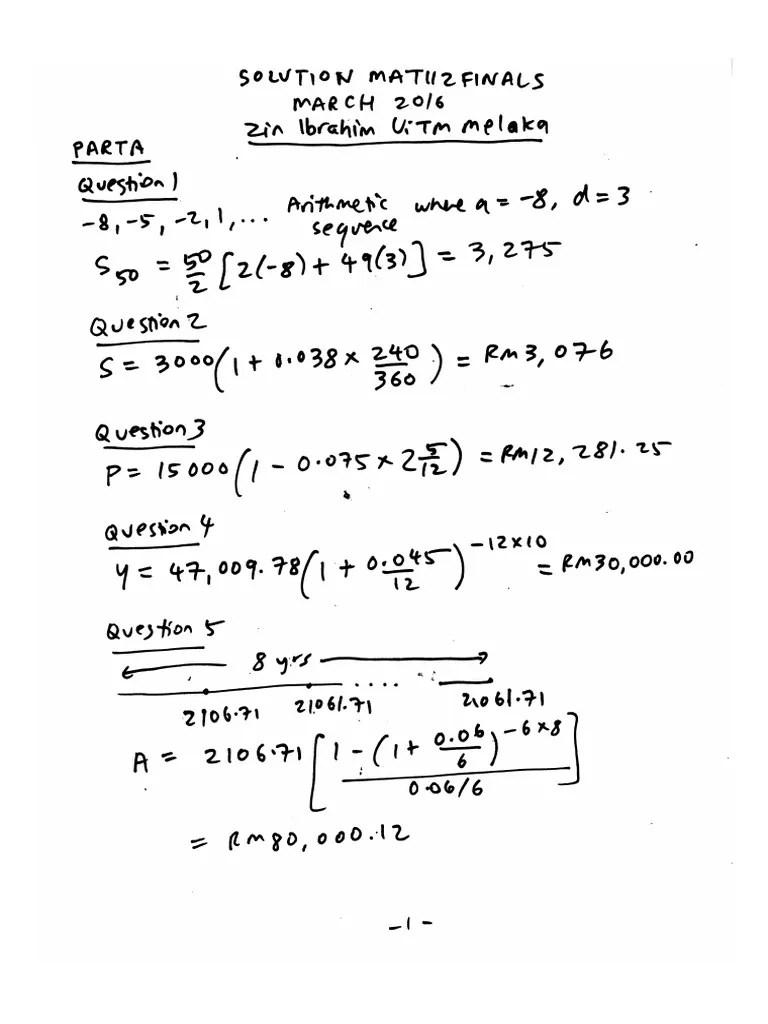 SOLUTION MAT112 FINALS
MARCH 2016
Zin Ibrahim UiTM Melaka
PART A
Question 1
-8, -5, -2, 1, ... Arithmetic sequence where a = -8, d = 3
S₅₀ = 50/2 [2(-8) + 49(3)] = 3,275
Question 2
S = 3000(1 + 0.038 × 240/360) = RM3,076
Question 3
P = 15000(1 - 0.075 × 2 5/12) = RM12,281.25
Question 4
y = 47,009.78(1 + 0.045/12)^(-12×10) = RM30,000.00
Question 5
8 yrs
2106.71 21061.71 .... 21061.71
A = 2106.71 [1 - (1 + 0.06/6)^(-6×8) / 0.06/6]
= RM80,000.12
-1-